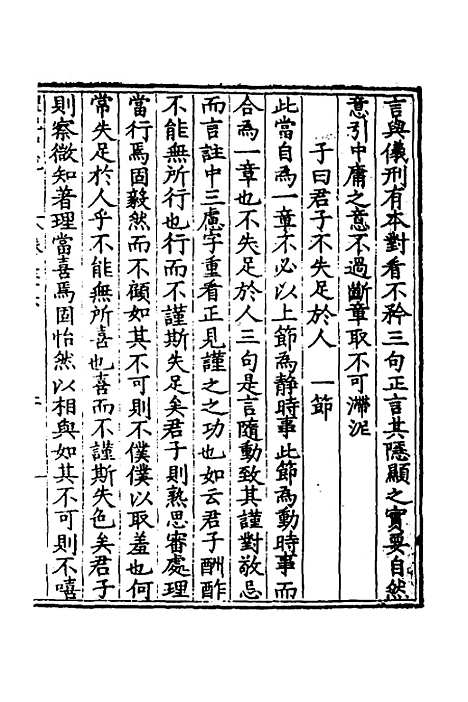 言與儀刑有本對看不矜三句正言其隱顯之實要自然
意引中庸之意不過斷章取不可滯泥
子曰君子不失足於人　一節
此當自為一章不必以上節為静時事此節為動時事而
合為一章也不失足於人三句是言隨動致其謹對敬忌
而言註中三慮字重看正見謹之之功也如云君子酬酢
不能無所行也行而不謹斯失足矣君子則熟思審處理
當行焉固毅然而不顧如其不可則不僕僕以取羞也何
常失足於人乎不能無所喜也喜而不謹斯失色矣君子
則察微知著理當喜焉固怡然以相與如其不可則不嘻